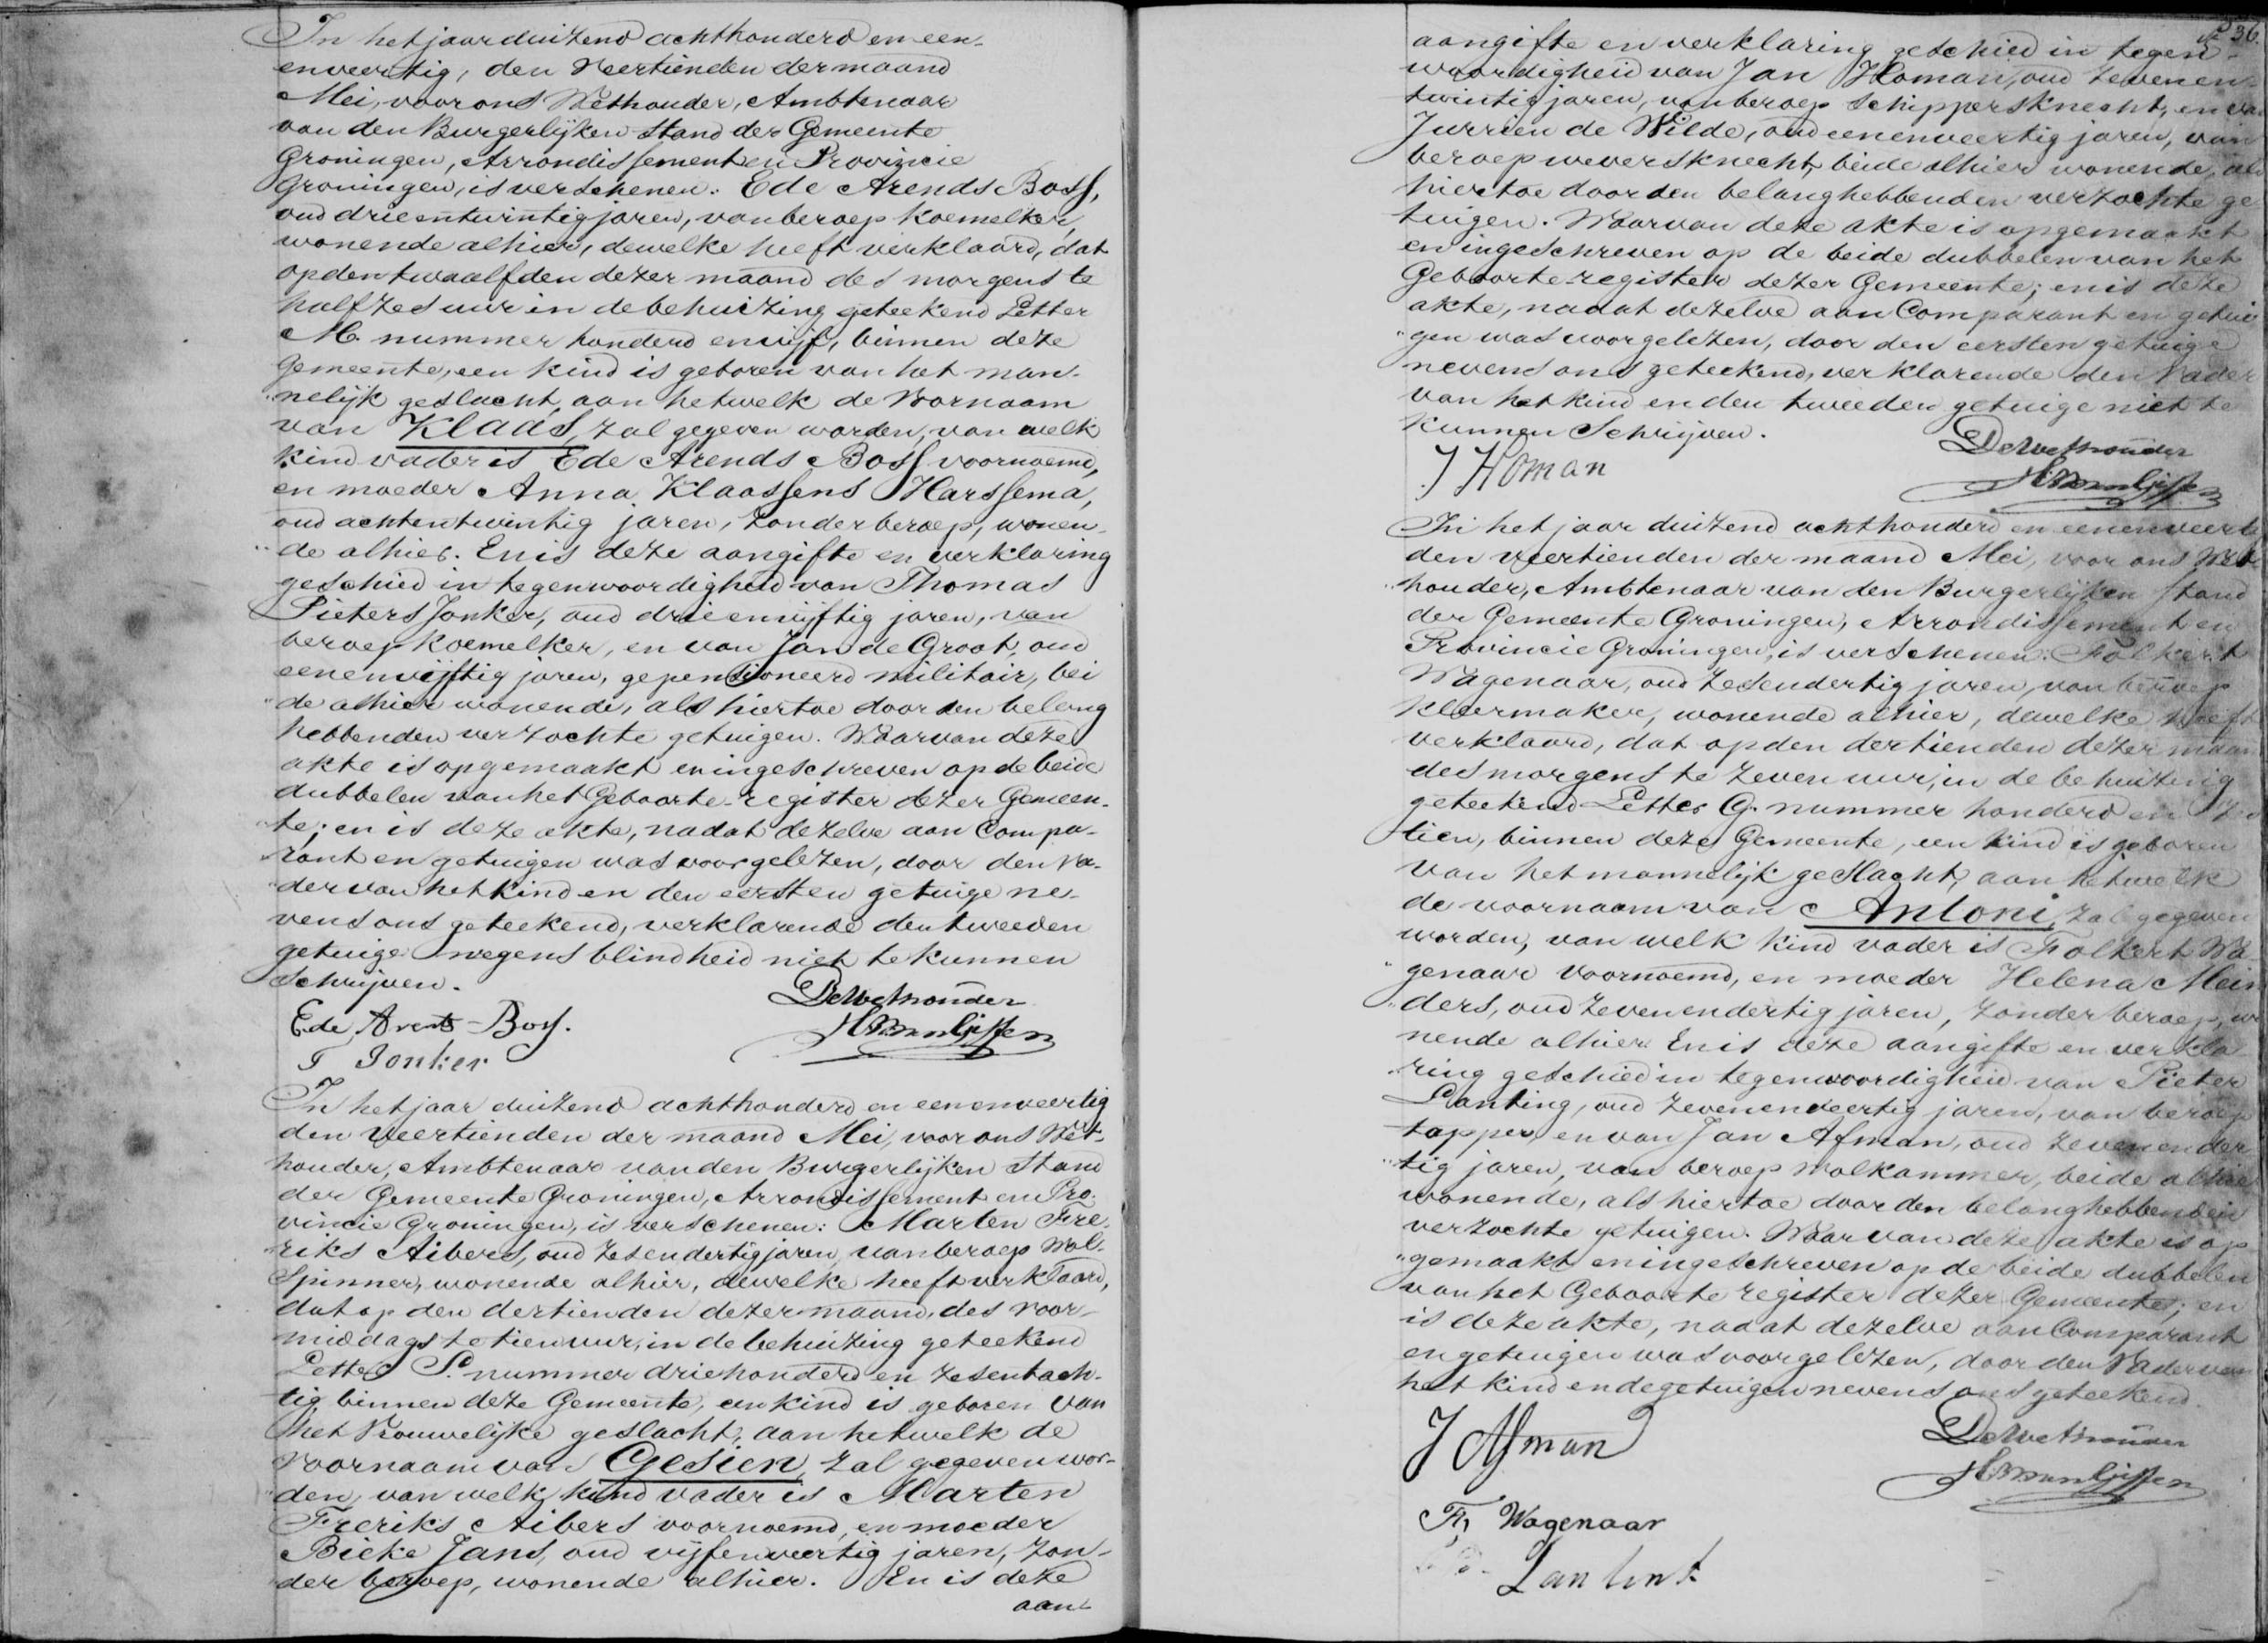 In het jaar duizend achthonderd en een-
enveertig, den Veertienden der maand
Mei, voor ons Wethouder, Ambtenaar
van den Burgerlijken Stand der Gemeente
Groningen, Arrondissement en Provizicie
Groningen, is verschenen: Ede Arends Boss,
oud drieentwintig jaren, van beroep koemelker,
wonende alhier, dewelke heeft verklaard, dat
op den twaalfden dezer maand des morgens te
half zes uur in de behuizing geteekend Letter
M. nummer honderd en vijf, binnen deze
Gemeente, een kind is geboren van het man-
nelijk geslacht, aan hetwelk de Voornaam
van Klaas, zal gegeven worden, van welk
kind vader is Ede Arends Boss voornoemd,
en moeder Anna Klaassens Harssema,
oud achtentwintig jaren, zonder beroep, wonen-
de alhier. En is deze aangifte en verklaring
geschied in tegenwoordigheid van Thomas
Pieters Jonker, oud drieenvijftig jaren, van
beroep koemelker, en van Jan de Groot, oud
eenenvijftig jaren, gepensioneerd militair, bei
de alhier wonende, als hiertoe door den belang
hebbenden verzochte getuigen. Waarvan deze
akte is opgemaakt en ingeschreven op de beide
dubbelen van het Geboorte-register dezer Gemeen-
te; en is deze akte, nadat dezelve aan Compa-
rant en getuigen was voorgelezen, door den Va-
der van het kind en den eersten getuige ne-
vens ons geteekend, verklarende den tweeden
getuige wegens blindheid niet te kunnen
Schrijven.
De Wethouder
Ede Arents Boss.
T Jonker
In het jaar duizend achthonderd en eenenveertig
den veertienden der maand Mei, voor ons Wet-
houder, Ambtenaar van den Burgerlijken Stand
der Gemeente Groningen, Arrondissement en Pro-
vincie Groningen, is verschenen: Marten Fre-
riks Aibers, oud zesendertig jaren, van beroep Wol-
Spinner, wonende alhier, dewelke heeft verklaard,
dat op den dertienden dezer maand, des voor-
middags te tien uur, in de behuizing geteekend
Letter S. nummer driehonderd en zesentach-
tig binnen deze Gemeente, een kind is geboren van
het Vrouwelijke geslacht, aan hetwelk de
Voornaam van Gesien, zal gegeven wor-
den, van welk kind vader is Marten
Freriks Aibers voornoemd, en moeder
Bieke Jans, oud vijfenveertig jaren, zon-
der beroep, wonende alhier. En is deze
aan-
36
aangifte en verklaring geschied in tegen-
woordigheid van Jan Homan, oud zevenen-
twintig jaren, van beroep Schippersknecht, en van
Jurrien de Wilde, oud eenenveertig jaren, van
beroep weversknecht, beide alhier wonende, als
hiertoe door den belanghebbenden verzochte ge
tuigen. Waarvan deze akte is opgemaakt
en ingeschreven op de beide dubbelen van het
Geboorte-register dezer Gemeente; en is deze
akte, nadat dezelve aan Comparant en getui
gen was voorgelezen, door den eersten getuige
nevens ons geteekend, verklarende den Vader
van het kind en den tweeden getuige niet te
kunnen Schrijven.
De Wethouder
J Homan
In het jaar duizend achthonderd en eenenveertig
den veertienden der maand Mei, voor ons Wet-
houder, Ambtenaar van den Burgerlijken Stand
der Gemeente Groningen, Arrondissement en
Provincie Groningen, is verschenen: Folkert
Wagenaar, oud zesendertig jaren, van beroep
kleermaker, wonende alhier, dewelke heeft
verklaard, dat op den dertienden dezer maand
des morgens te zeven uur, in de behuizing
geteekend Letter G. nummer honderd en
tien, binnen deze Gemeente, een kind is geboren
van het mannelijk geslacht, aan hetwelk
de voornaam van Antoni, zal gegeven
worden, van welk kind vader is Folkert Wa-
genaar voornoemd, en moeder Helena Mein
ders, oud zevenendertig jaren, zonder beroep, wo
nende alhier. En is deze aangifte en verkla-
ring geschied in tegenwoordigheid van Pieter
Lanting, oud zevenenveertig jaren, van beroep
tapper, en van Jan Afman, oud zevenender
tig jaren, van beroep wolkammer, beide alhier
wonende, als hiertoe door den belanghebbenden
verzochte getuigen. Waarvan deze akte is op
gemaakt en ingeschreven op de beide dubbelen
van het Geboorte register dezer Gemeente; en
is deze akte, nadat dezelve aan Comparant
en getuigen was voorgelezen, door den Vader van
het kind en de getuigen nevens ons geteekend.
J Afman
De Wethouder
F, Wagenaar